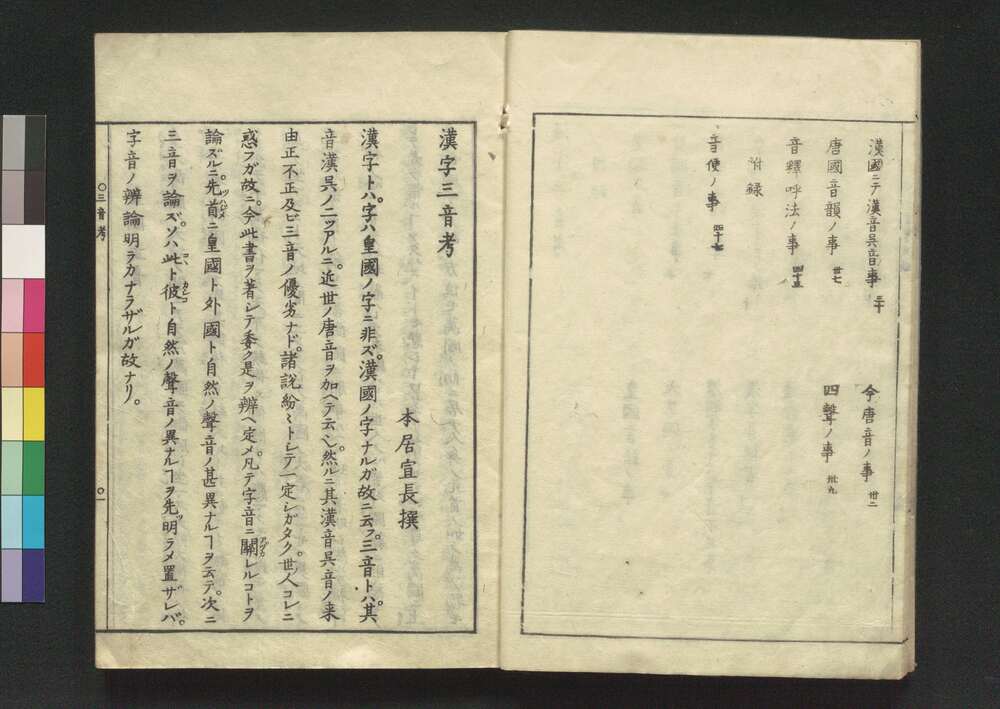 漢國ニテ漢音呉音事 三十
今唐音ノ事 卅二
唐國音韻ノ事 卅七
四聲ノ事 卅九
音釋呼法ノ事 四十五
附録
音便ノ事 四十七
漢字三音考
本居宣長撰
漢字トハ。字ハ皇國ノ字ニ非ズ。漢國ノ字ナルガ故ニ云フ。三音トハ。其
音漢呉ノ二ツアルニ。近世ノ唐音ヲ加ヘテ云ヘレ。然ルニ其漢音呉音ノ来
由正不正及ビ三音ノ優劣ナド。諸説紛々トシテ一定シガタク。世人コレニ
惑フガ故ニ。今此書ヲ著シテ委ク是ヲ辨ヘ定メ。凡テ字音ニ關アヅカレルコトヲ
論ズルニ。先ツ首ハジメニ皇國ト外國ト自然ノ聲音ノ甚異ナルヿヲ云テ。次ニ
三音ヲ論ズ。ソハ此コヽト彼カシコト自然ノ聲音ノ異ナルヿヲ先ツ明ラメ置ザレバ。
字音ノ辨論明ラカナラザルガ故ナリ。
○三音考
○一